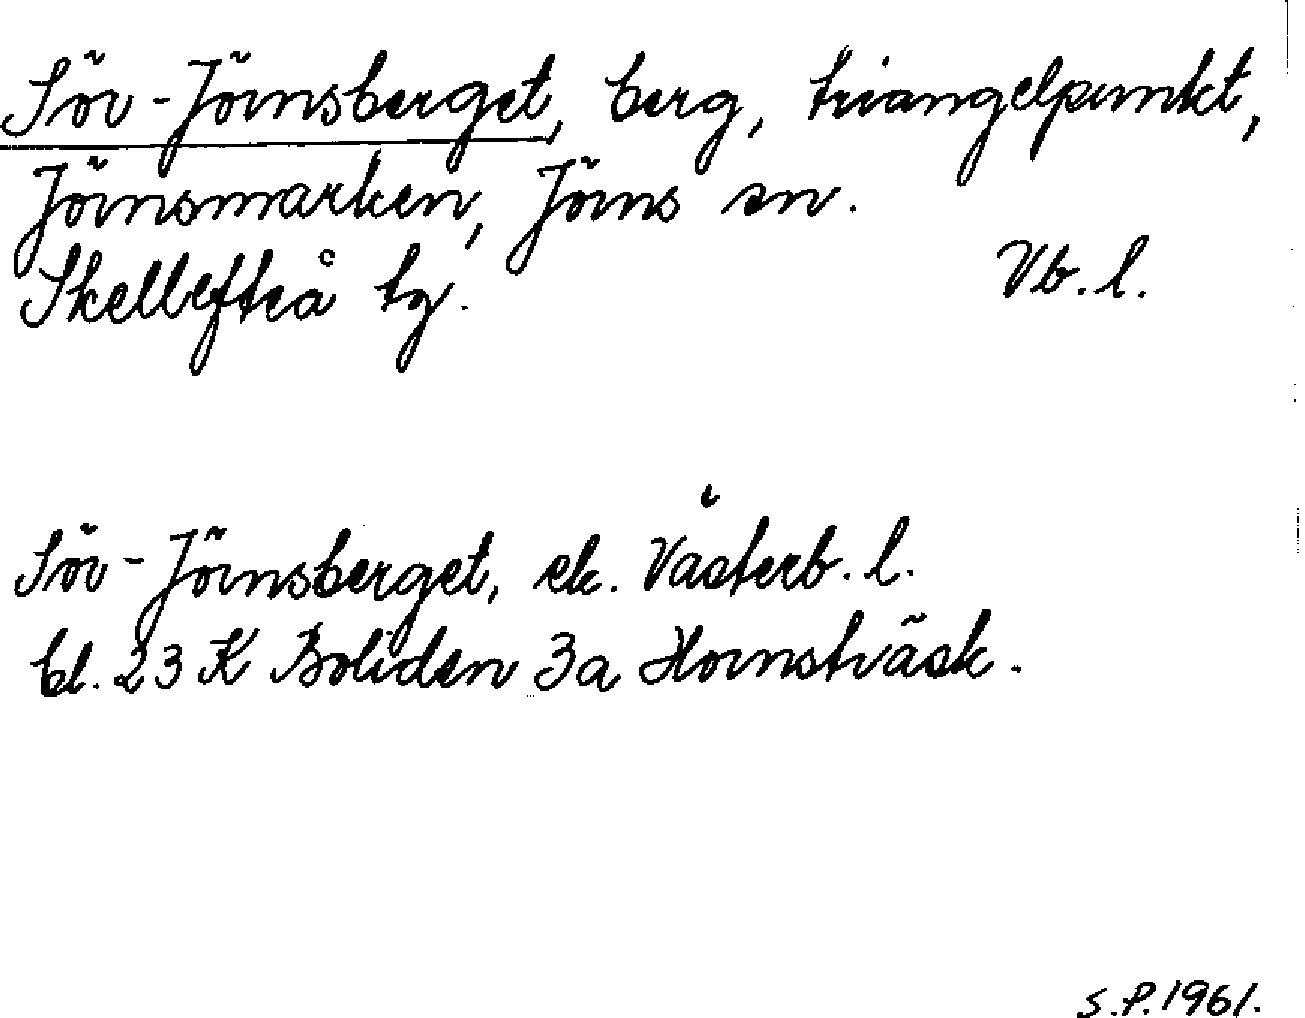 Sör-Jörnsberget, berg, triangelpunkt,
Jörnsmarken, Jörns sn.
Skellefteå tg. Vb. l.
Sör-Jörnsberget, ek. Västerb. l.
bl. 23 K Boliden 3a Hornsträsk.
S.P. 1961.